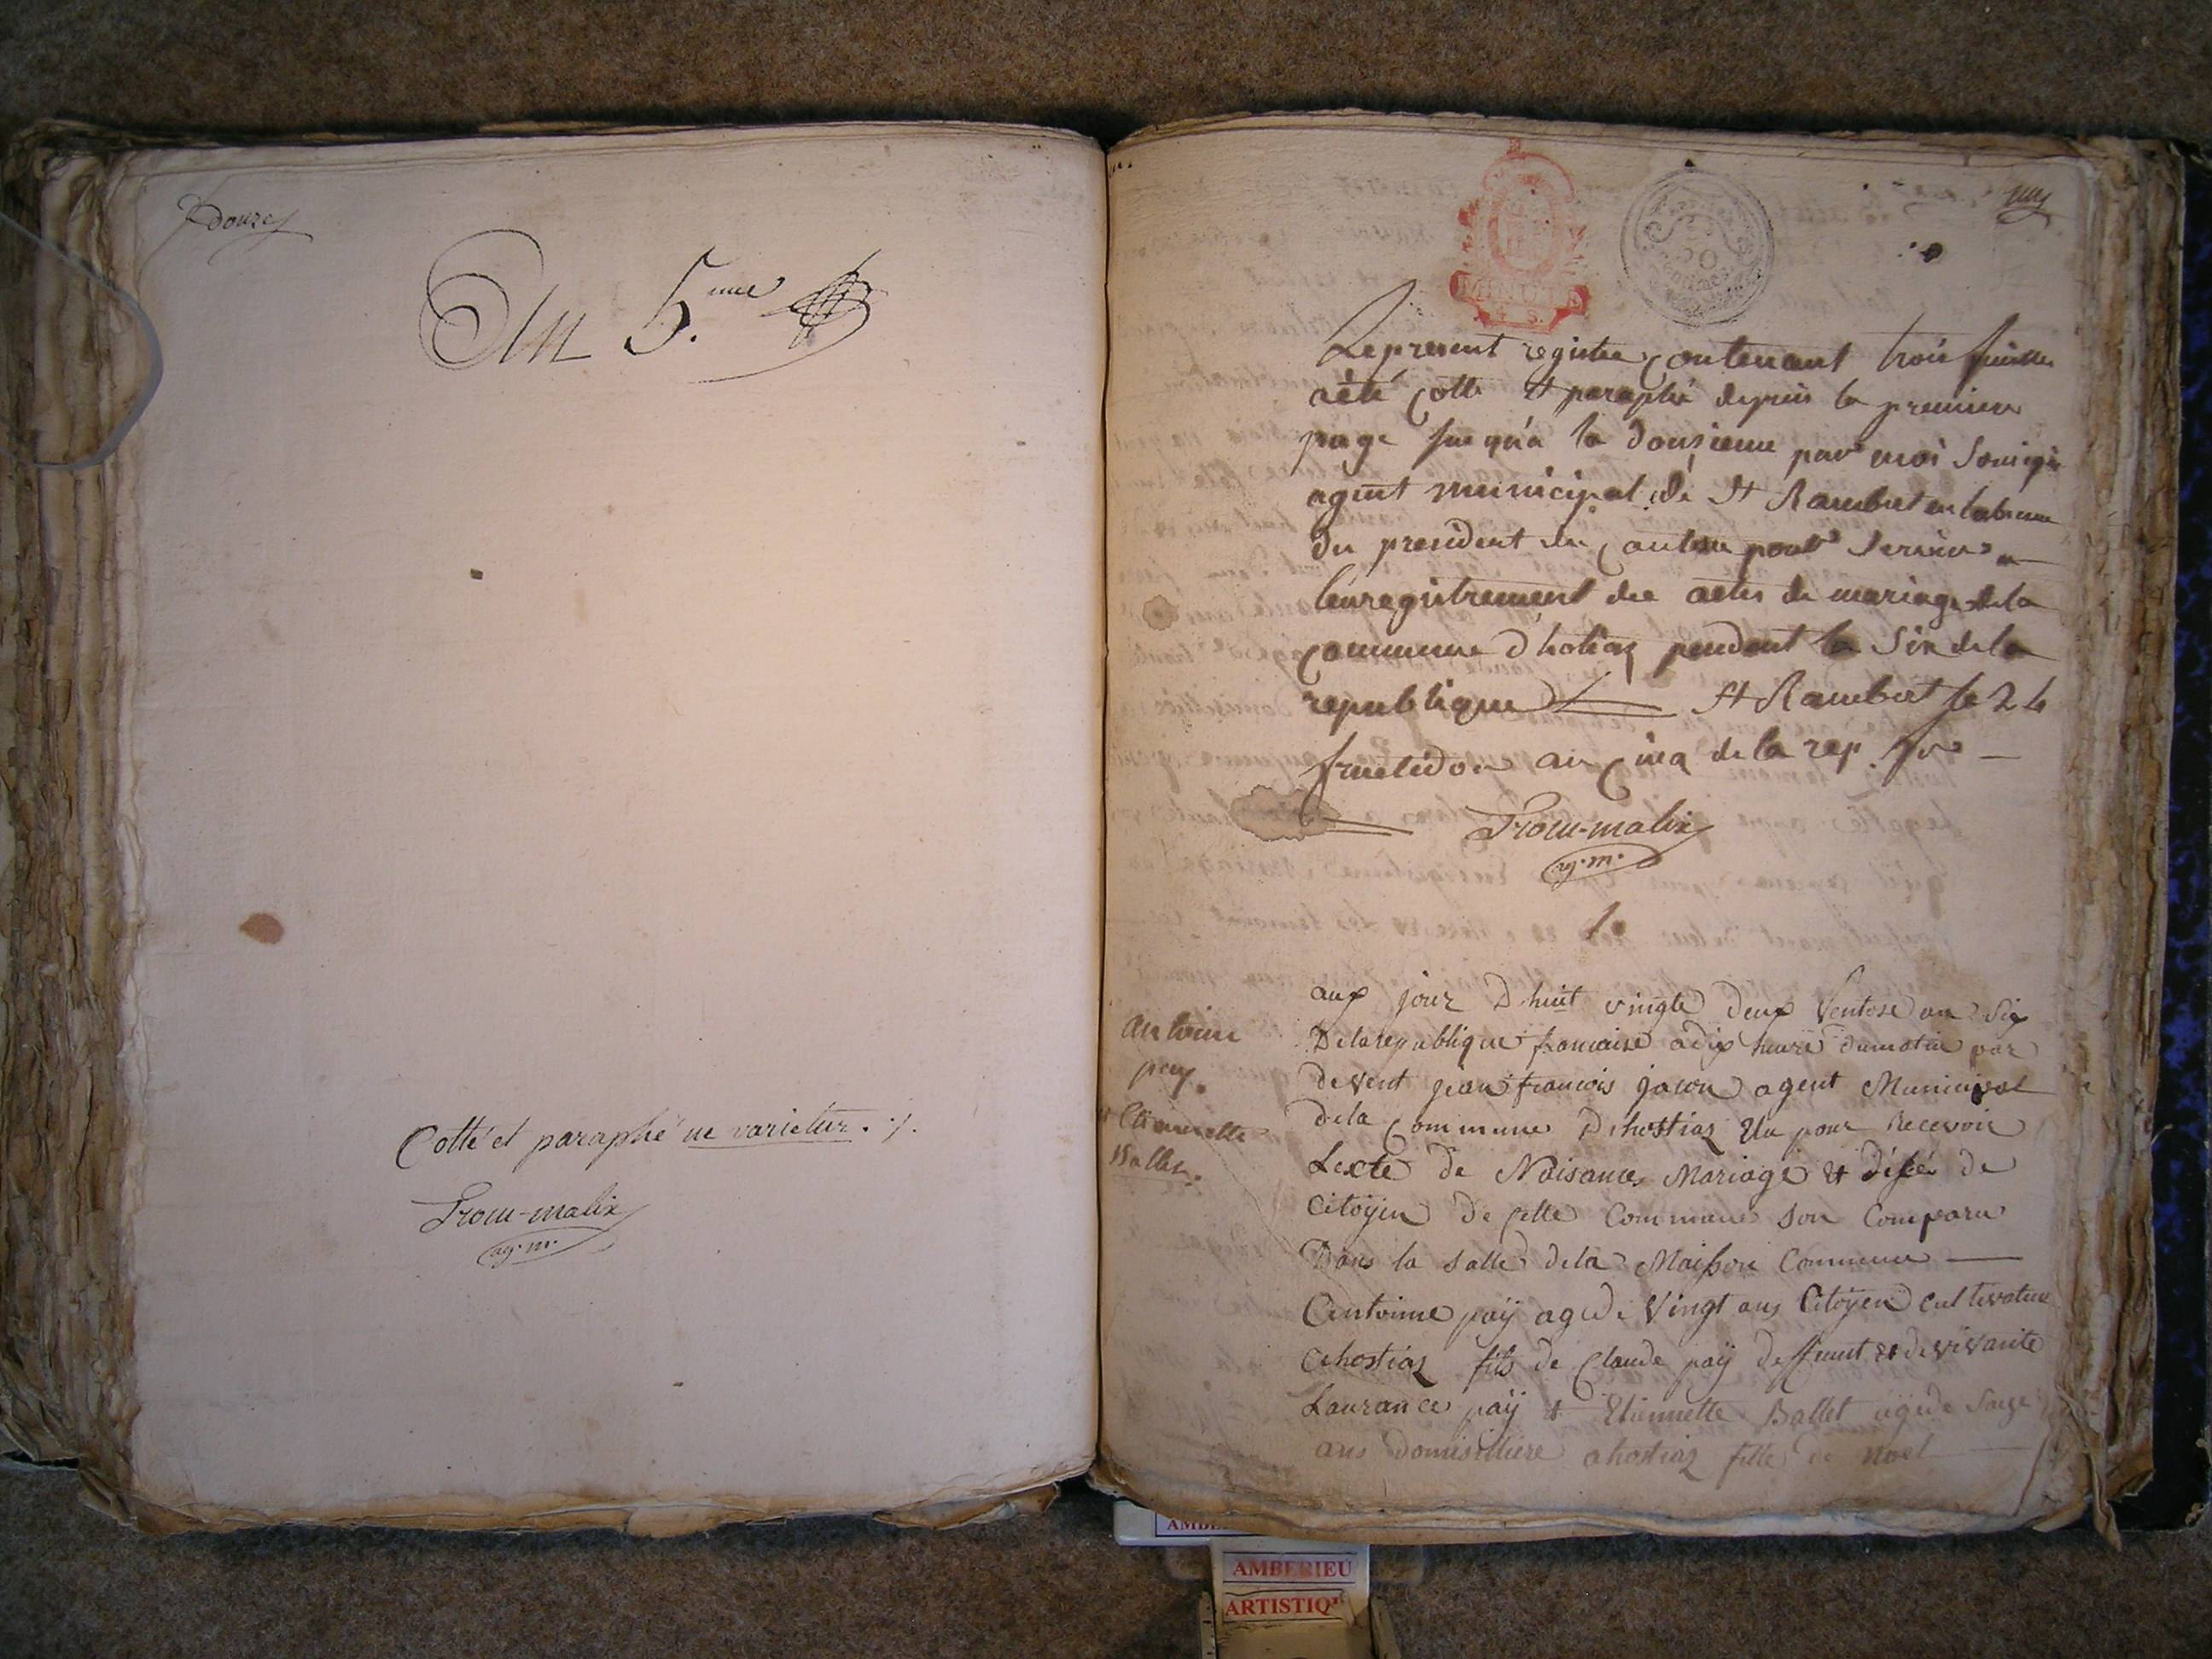 douze
An 5.me
Cotté et paraphé ne varietur ./.
Trocu-malix
ag. m.
MINUTE
50
Le present registre contenant trois feuilles
aété cotté et paraphé depuis la premiere
page jusqu'a la douzieme par moi soussigné
agent municipal de St Rambert en labsence
du president du canton pour servir a
lenregistrement des actes de mariage de la
commune d'hostiaz pendent la Six de la
republique St Rambert le 24
fructidor an cinq de la rep.
Trocu-malix
ag. m.
1.
antoine
pay.
et Etiennette
Ballet.
aux jour D huit vingte deux Ventose an Six
Dela republique francaise a dix heure dumatin par
devent jean francois jacon agent Municipal
dela Commune Dehostiaz Elu pour Recevoir
Lexte de Naisance Mariage et désée de
Citoyen de cette Commune Son Comparu
Dans la Salle dela Maison Commune
Antoinne paÿ agé de Vingt ans Citoyen Cultivateur
ahostiaz fils de Claude paÿ deffunt et de vivante
Laurance paÿ et Etiennette Ballet agéde Saize
ans domisiliere ahostiaz fille de Noel
AMBERIEU
ARTISTIQ